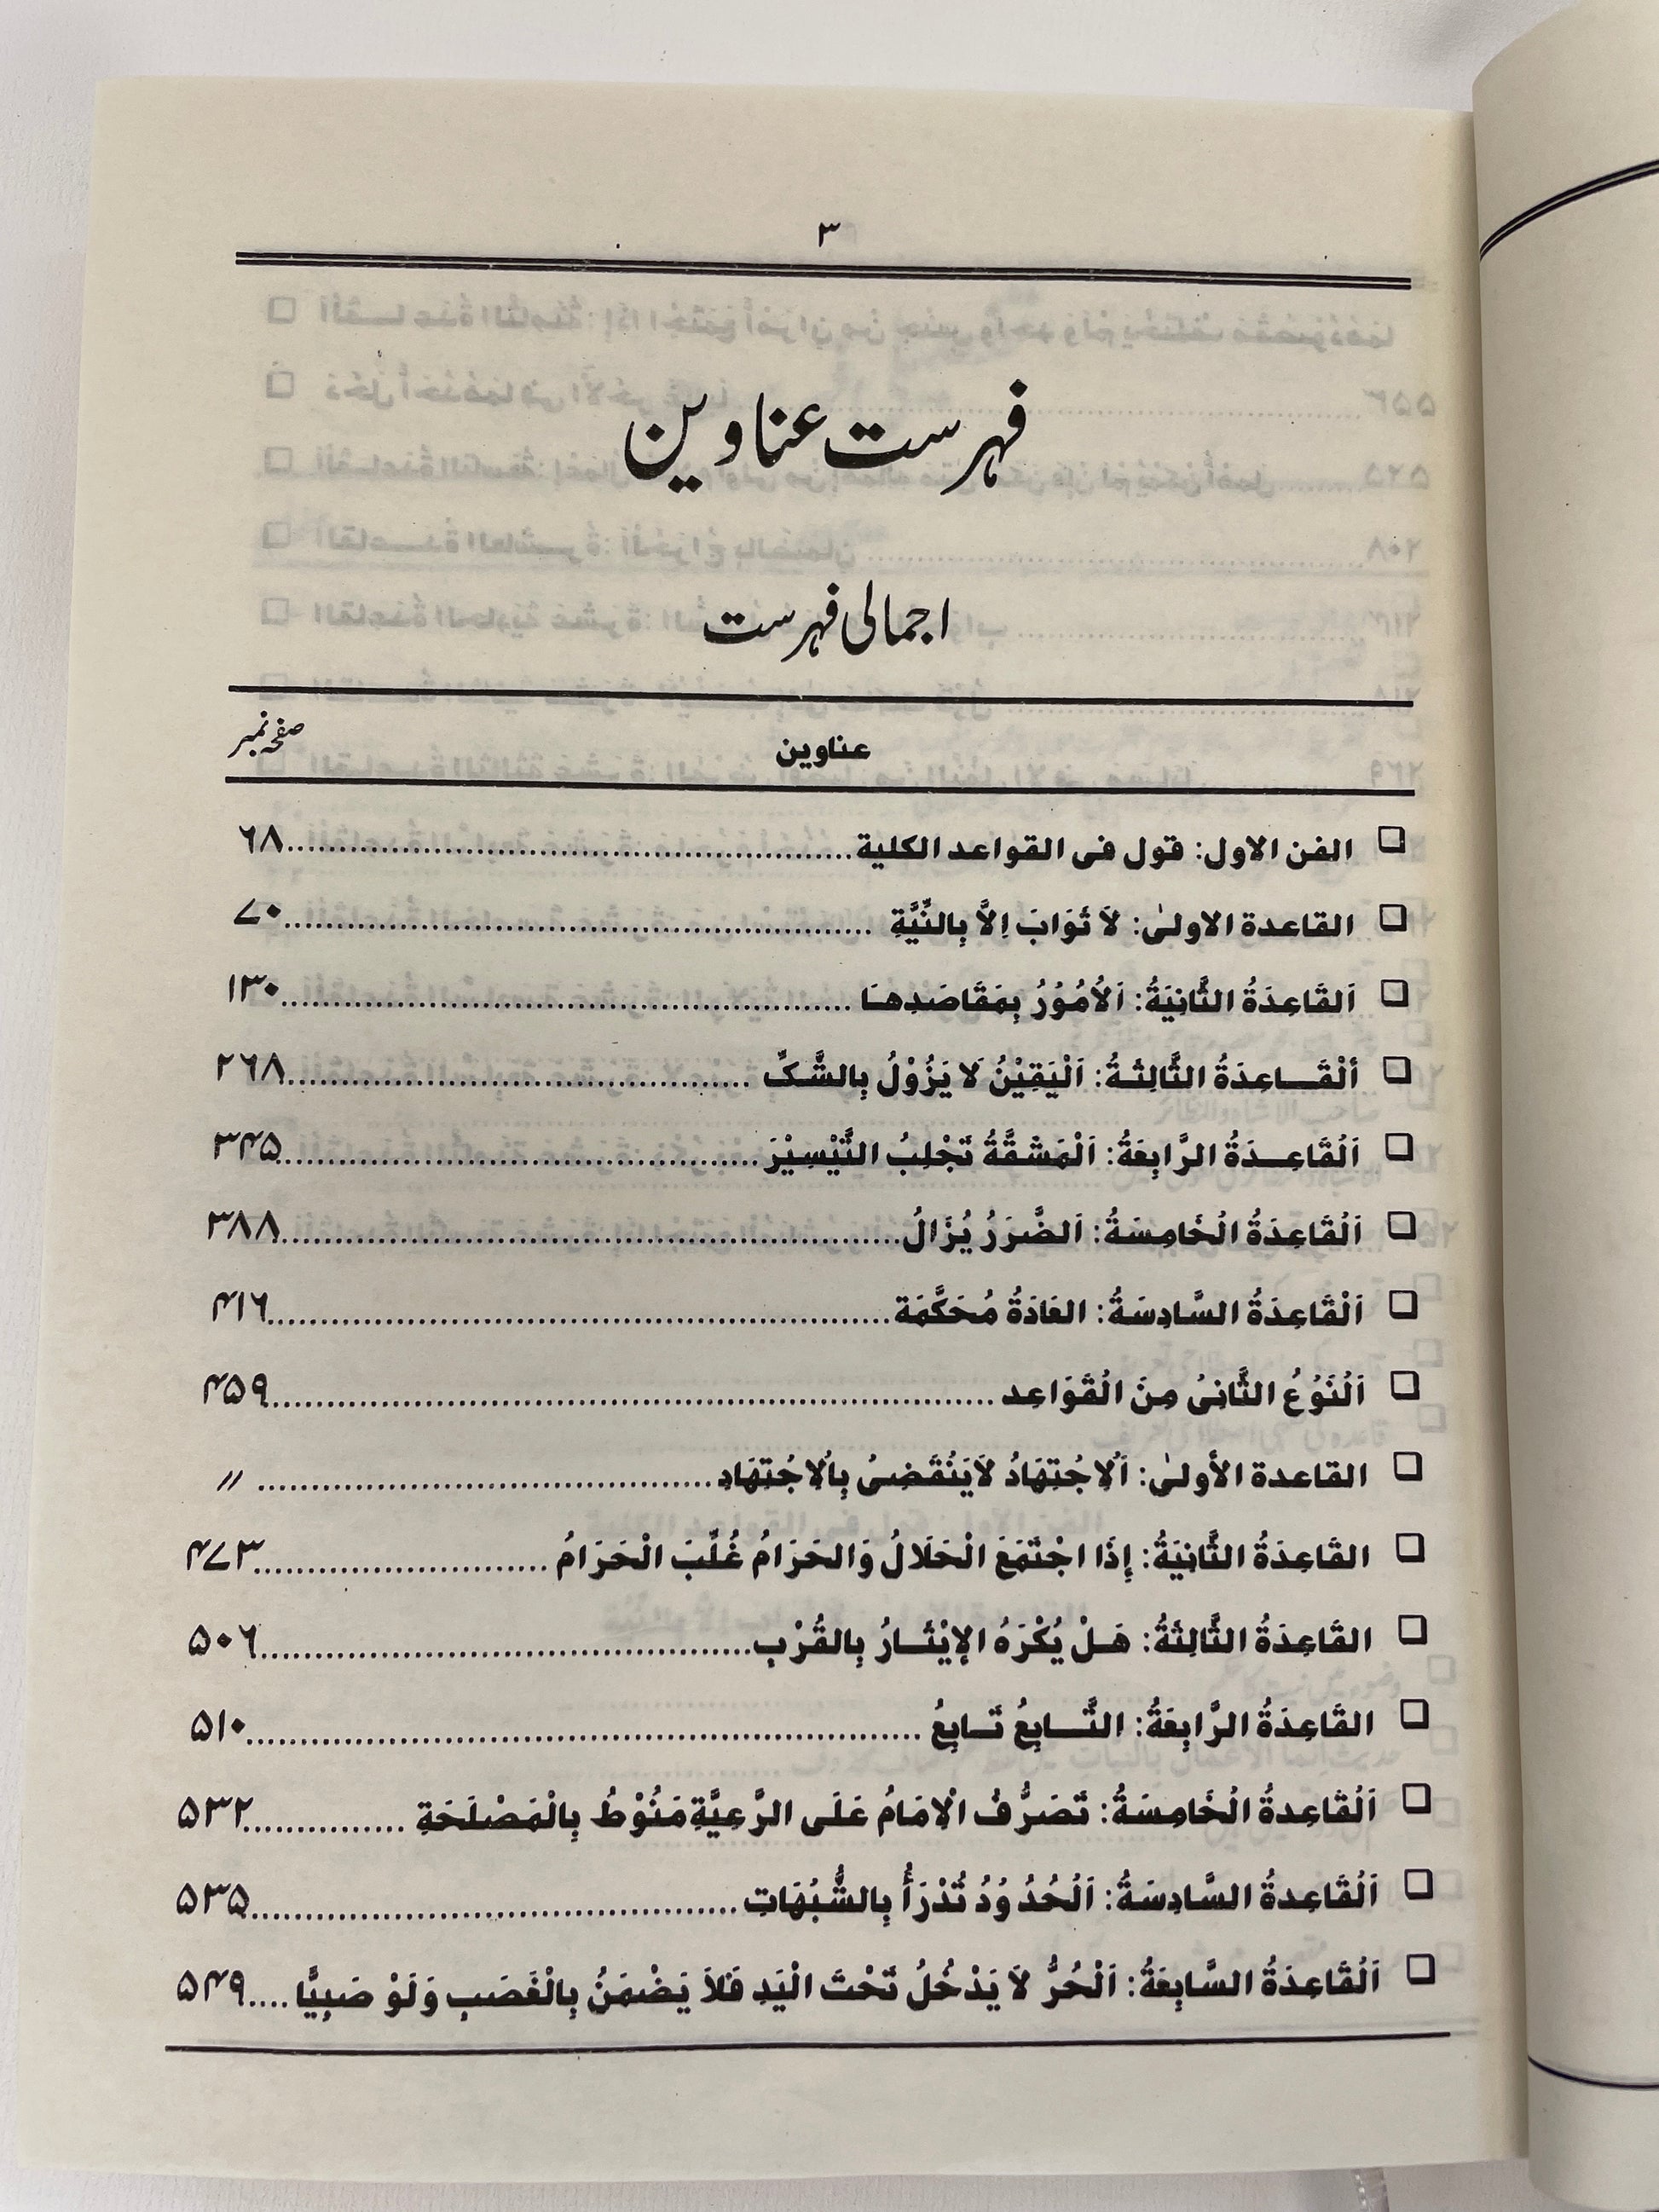 ۳
فہرست عناوین
اجمالی فہرست
عناوین صفحہ نمبر
❏ الفن الاول: قول فی القواعد الکلیة ۶۸
❏ القاعدة الاولیٰ: لَا ثَوَابَ اِلَّا بِالنِّیَّةِ ۷۰
❏ اَلقَاعِدَةُ الثَّانِیَةُ: اَلْاُمُوْرُ بِمَقَاصَدِهَا ۱۳۰
❏ أَلْقَاعِدَةُ الثَّالِثَةُ: اَلْیَقِیْنُ لَا یَزُوْلُ بِالشَّکِّ ۲۶۸
❏ اَلْقَاعِدَةُ الرَّابِعَةُ: اَلْمَشَقَّةُ تَجْلِبُ التَّیْسِیْرَ ۳۴۵
❏ اَلْقَاعِدَةُ الْخَامِسَةُ: اَلضَّرَرُ یُزَالُ ۳۸۸
❏ اَلْقَاعِدَةُ السَّادِسَةُ: العَادَةُ مُحَکَّمَة ۴۱۶
❏ اَلْنَوْعُ الثَّانِیْ مِنَ الْقَوَاعِد ۴۵۹
❏ القاعدة الأولیٰ: اَلْاِجْتِهَادُ لَایَنْقَضِیْ بِاْلِاجْتِهَادِ //
❏ القَاعِدَةُ الثَّانِیَةُ: إِذَا اجْتَمَعَ الْحَلَالُ وَالحَرَامُ غُلِّبَ الْحَرَامُ ۴۷۳
❏ القَاعِدَةُ الثَّالِثَةُ: هَلْ یُکْرَهُ الإِیْثَارُ بِالقُرْبِ ۵۰۶
❏ القَاعِدَةُ الرَّابِعَةُ: التَّابِعُ تَابِعُ ۵۱۰
❏ اَلْقَاعِدةُ الْخَامِسَةُ: تَصَرُّفُ الْاِمَامُ عَلَی الرَّعِیَّةِ مَنُوْطُ بِالْمَصْلَحَةِ ۵۳۲
❏ اَلْقَاعِدةُ السَّادِسَةُ: اَلْحُدُوْدُ تُدْرَأُ بِالشُّبْهَاتِ ۵۳۵
❏ اَلْقَاعِدَةُ السَّابِعَةُ: اَلْحُرُّ لَا یَدْخُلُ تَحْتَ الْیَدِ فَلَا یَضْمَنُ بِالْغَصَبِ وَلَوْ صَبِیًّا ۵۴۹